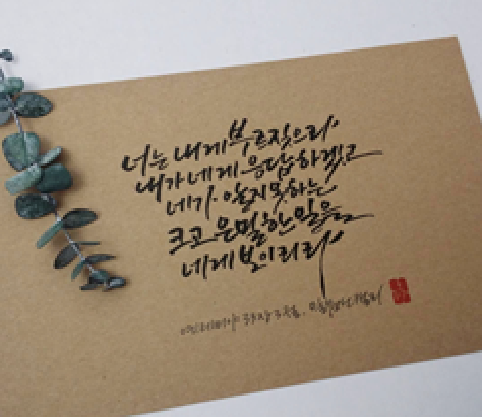 너는 내게 부르짖으라
내가 네게 응답하겠고
네가 알지 못하는
크고 은밀한 일을
네게 보이리라
예레미야 33장 3절.